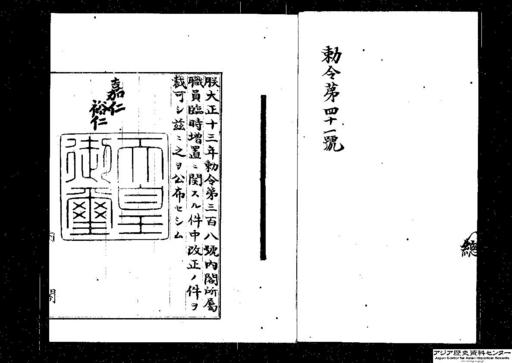 勅令第四十一號
朕大正十三年勅令第三百八號內閣所屬
職員臨時增置ニ関スル件中改正ノ件ヲ
裁可シ茲ニ之ヲ公布セシム
嘉仁
裕仁
天皇
御璽
內
閣
總
アジア歴史資料センター
Japan Center for Asian Historical Records